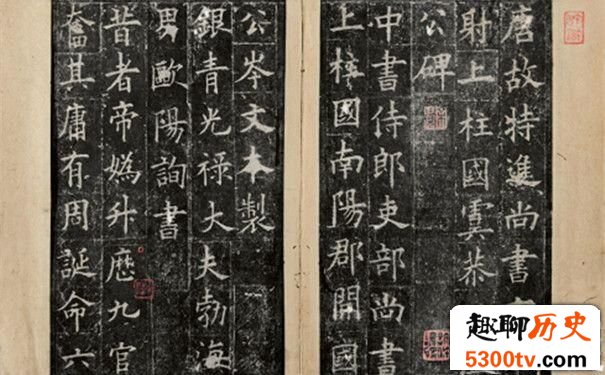 唐故特進尚書
射上柱國虞恭
公碑
中書侍郎吏部尚書
上柱國南陽郡開國
公岑文本製
銀青光祿大夫勃海
男歐陽詢書
昔者帝媯升歷九官
奮其庸有周誕命六
趣聊历史
5300tv.com